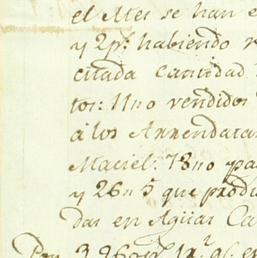 el Mes se han e
y 2p.s habiendo v
citada cantidad
tos: 11 no vendidos
á los Arrendatar
Maciel: 78 no pa
y 26 n 5 que produ
das en Aguas Ca
Por 3,260